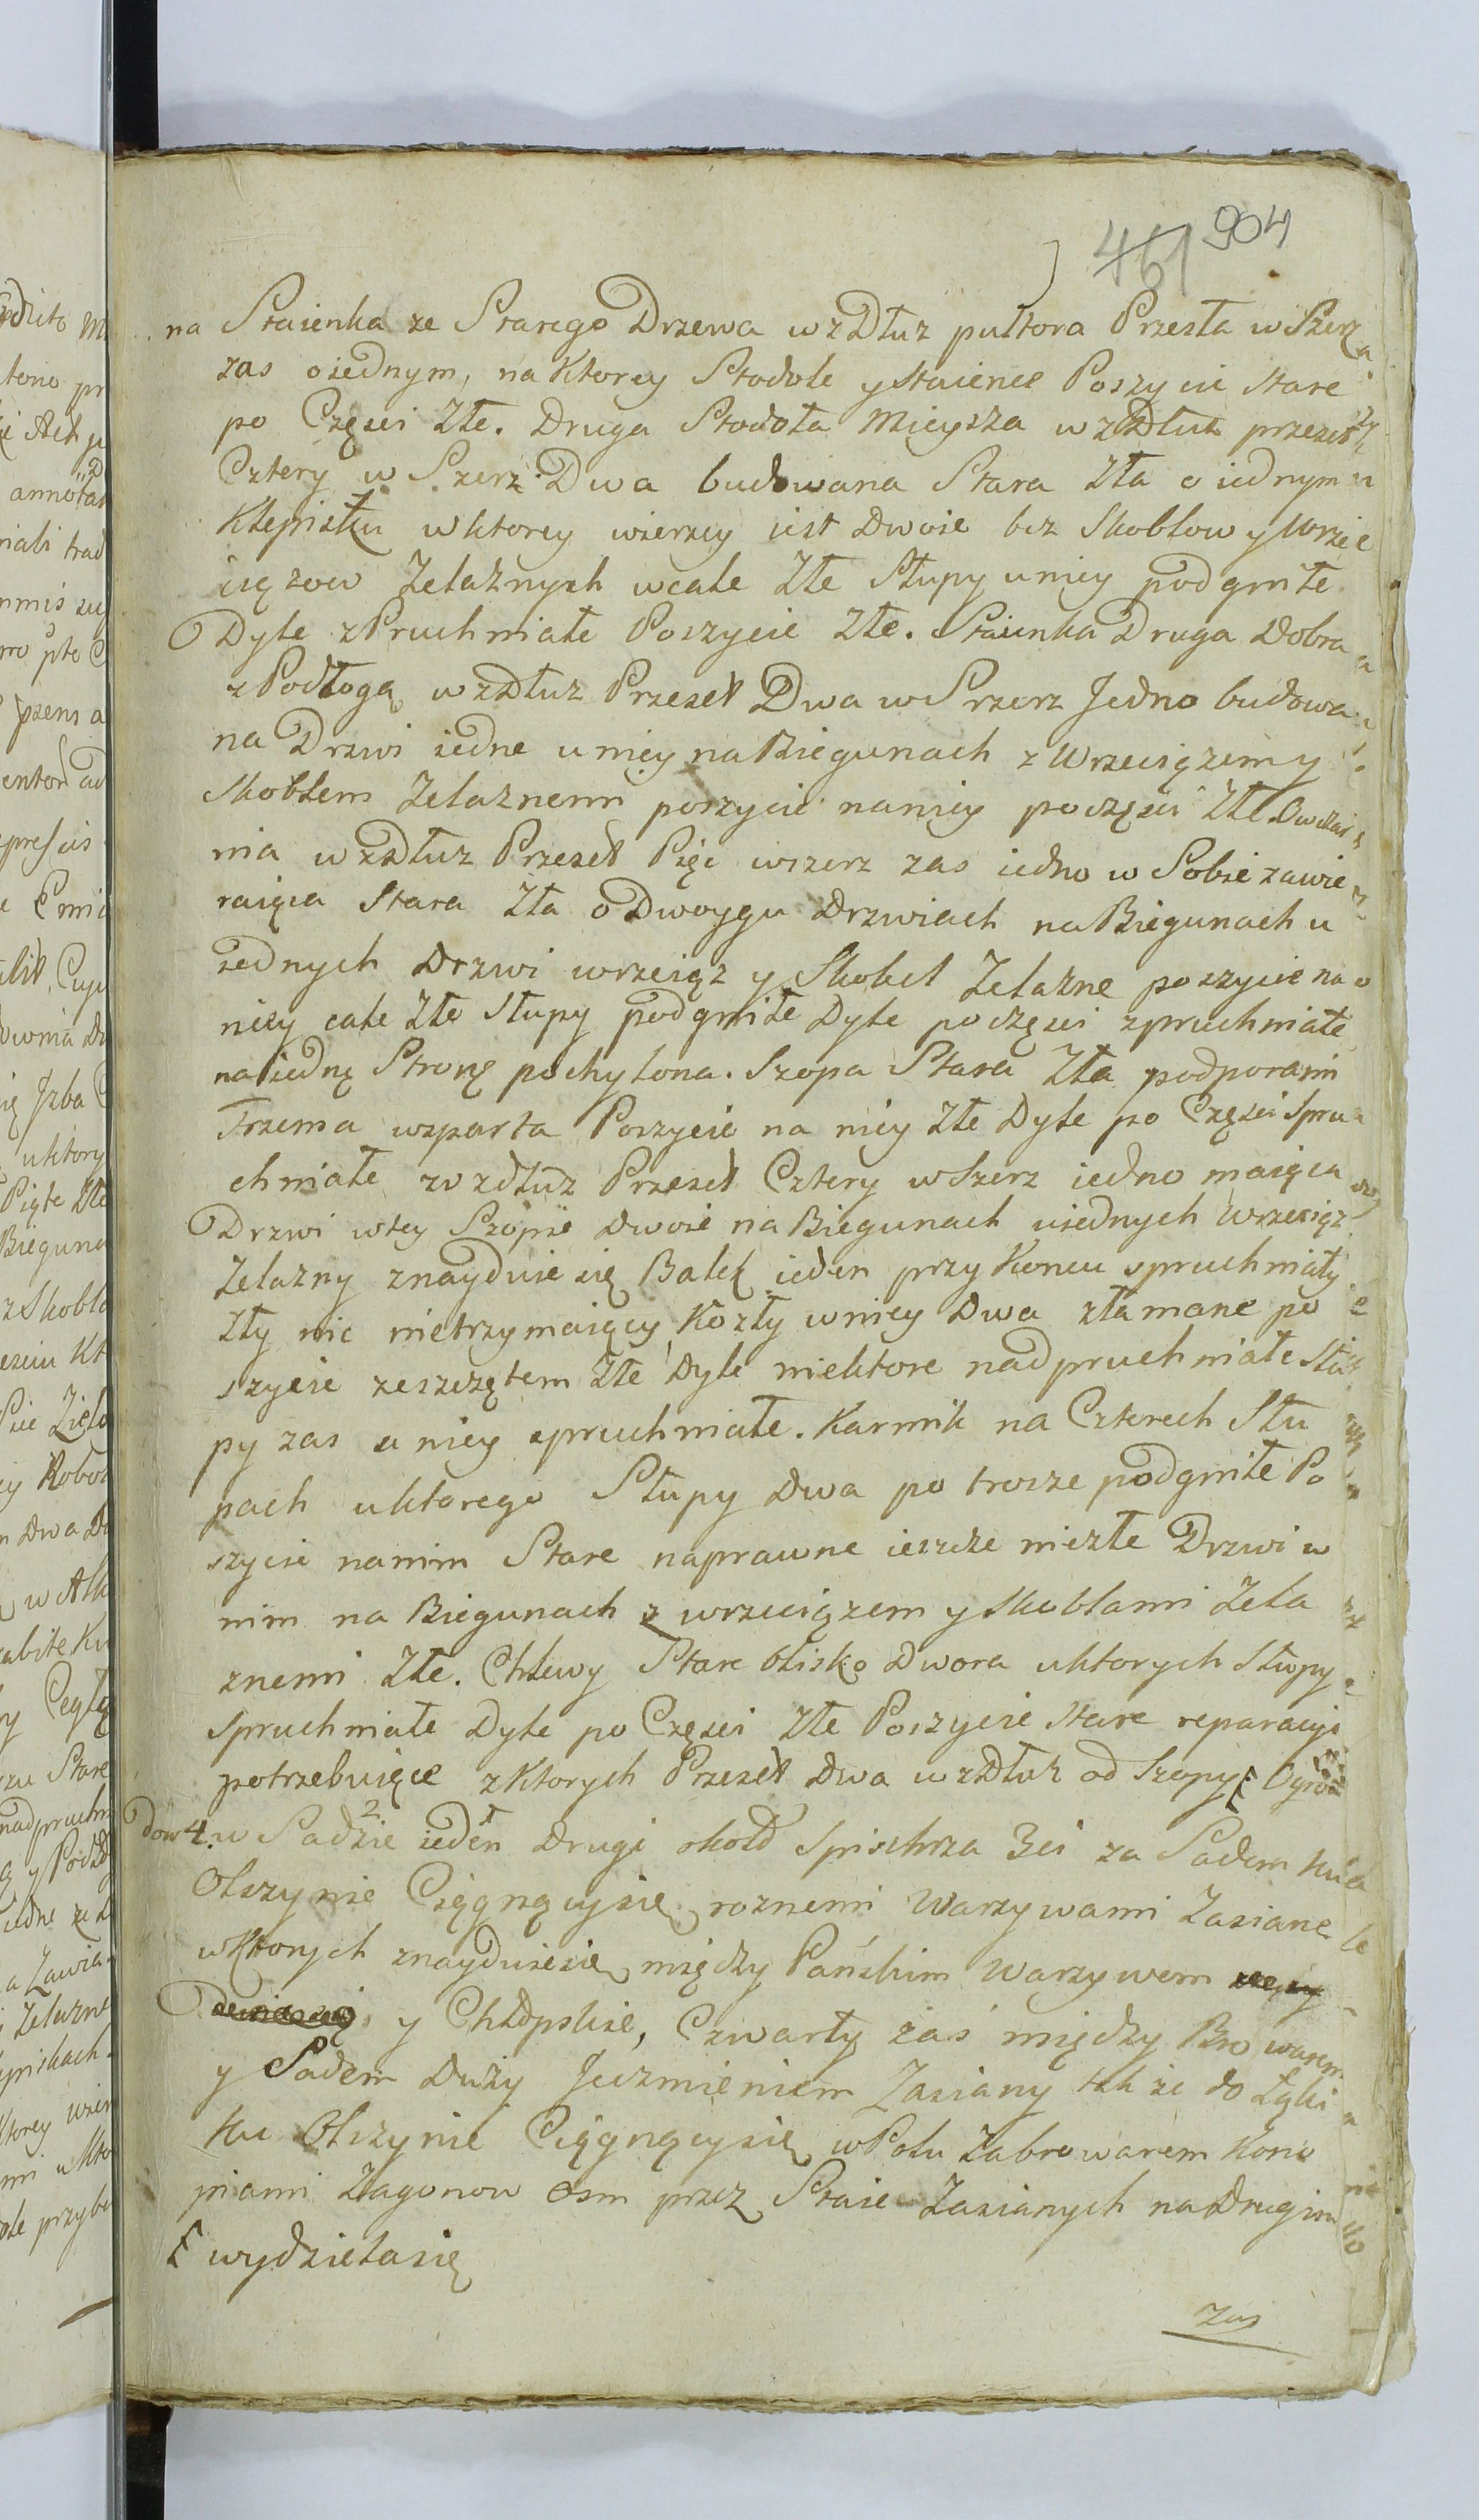 461 904
na Staienka ze Starego Drzewa wzDłuz pułtora Przesła w Szerz
zas o iednym, na Ktorey Stodole y staience Poszycie stare
po Częsci złe. Druga Stodoła Mieysza wzDłuz przeseł
Cztery w Szerz Dwa budowana Stara zła o iednym
Klepisku w ktorey wierzey iest Dwoie bez Skoblow y Wrze
ciązow Zelaznych wcale złe Słupy u niey podgniłe
Dyle zPruchniałe Poszycie złe. Staienka Druga Dobra
z Podłogą wzDłuz Przeseł Dwa w Szerz Jedno budowa
na Drzwi iedne u niey na Biegunach z Wrzeciązem y
Skoblem Zelaznem poszycie na niey poczęsci złe. Owczar
nia wzdłuz Przeseł Pięc wszerz zas iedno w Sobie zawie
raiąca stara zła o Dwoygu Drzwiach na Biegunach u
iednych Drzwi wrzeciąz y Skobel Zelazne poszycie na
niey całe złe Słupy podgniłe Dyle poczęsci zpruchniałe
na iednę Stronę pochylona. Szopa Stara zła podporami
Trzema wsparta Poszycie na niey złe Dyle po Częsci spru
chniałe wzdłuz Przeseł Cztery w Szerz iedno maiąca
Drzwi w tey Szopie dwoie na Biegunach u iednych wrzeciąz
Zelazny znayduie się Balek ieden przy Koncu spruchniały
zły nic nietrzymaiący, Kozły w niey Dwa złamane po
szycie zeszczętem złe Dyle niektore nadpruchniałe Słu
py zas u niey spruchniałe. Karmik na Czterech Słu
pach u ktorego Słupy Dwa po trosze podgniłe Po
szycie na nim Stare naprawne ieszcze niezłe Drzwi w
nim na Biegunach z wrzeciązem y Skoblami Zela
znemi złe. Chlewy Stare blisko Dwora u ktorych Słupy
spruchniałe Dyle po Częsci złe Poszycie stare reparacyi
potrzebuiące z Ktorych Przeseł Dwa wzDłuz od Szopy Ogro
dow 4. w Sadzie 2 ieden 1 Drugi około Spichrza 3ci za Sadem ku
Olszynie Ciągnącysie roznemi Warzywami Zasiane
w Ktorych znayduiesie między Pańskim Warzywem
y Chłopskie, Czwarty zaś między Browarem
y Sadem Duży Jęczmieniem Zasiany takze do Łąki
ku Olszynie Ciągnącysię w Polu Zabrowarem Kono
piami Zagonow osm przez Staie Zasianych na Drugim
wydzielasię
zas